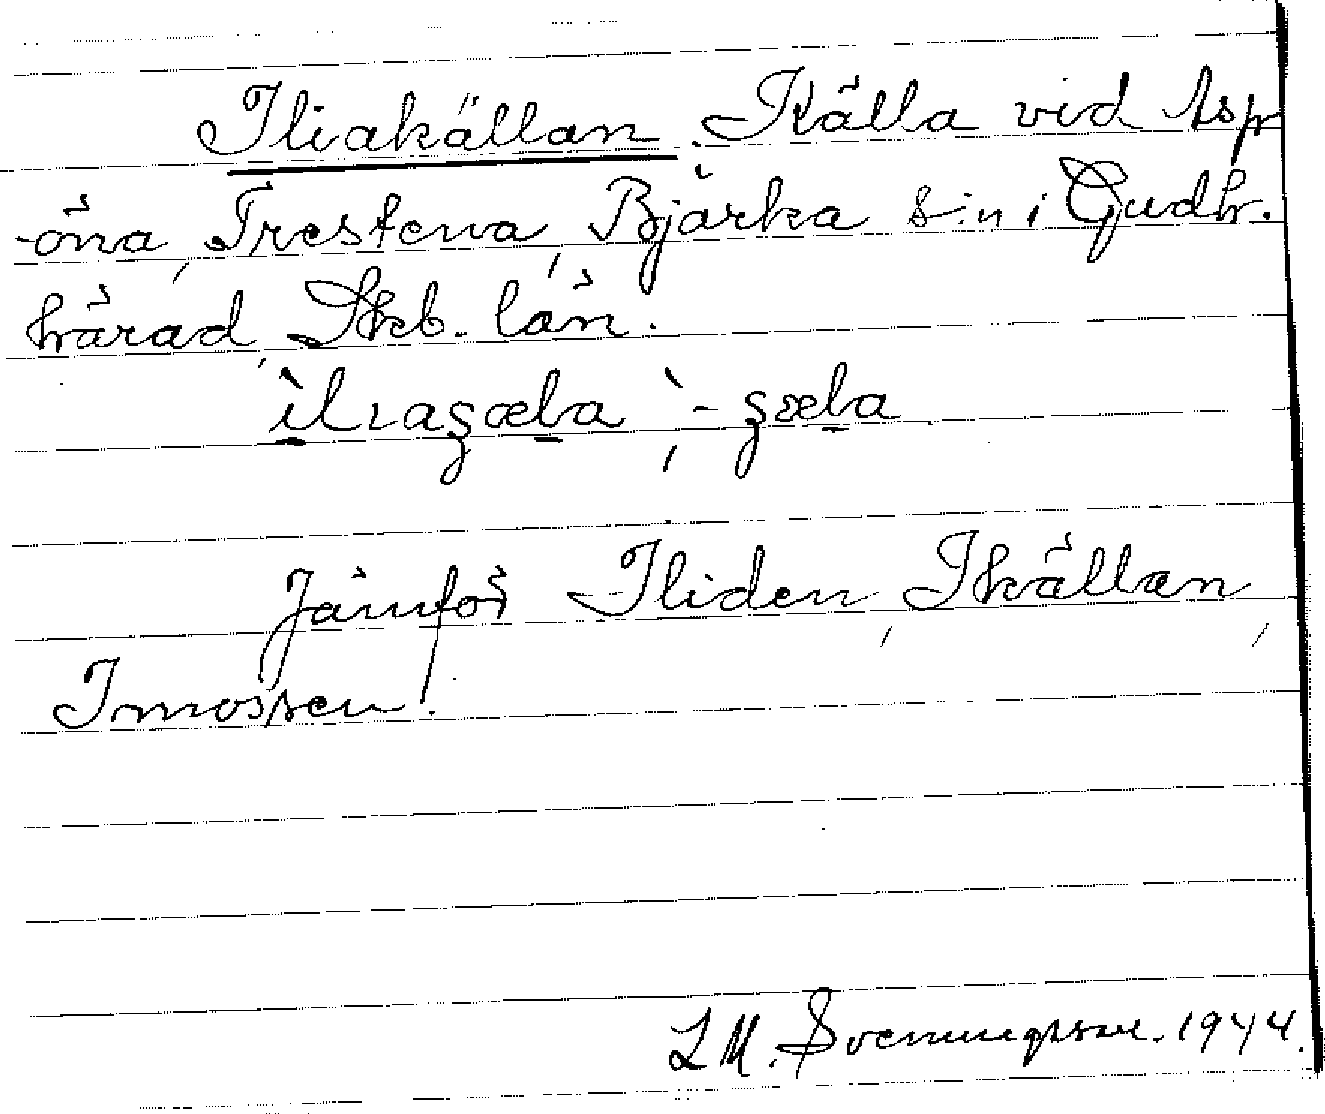 Iliakällan. Källa vid Asp
-öna, Trestena, Bjärka s:n i Gudh.
härad, Skb. län.
Jämför Iliden, Ikällan,
Imossen!
L M. Svenungsson. 1944.